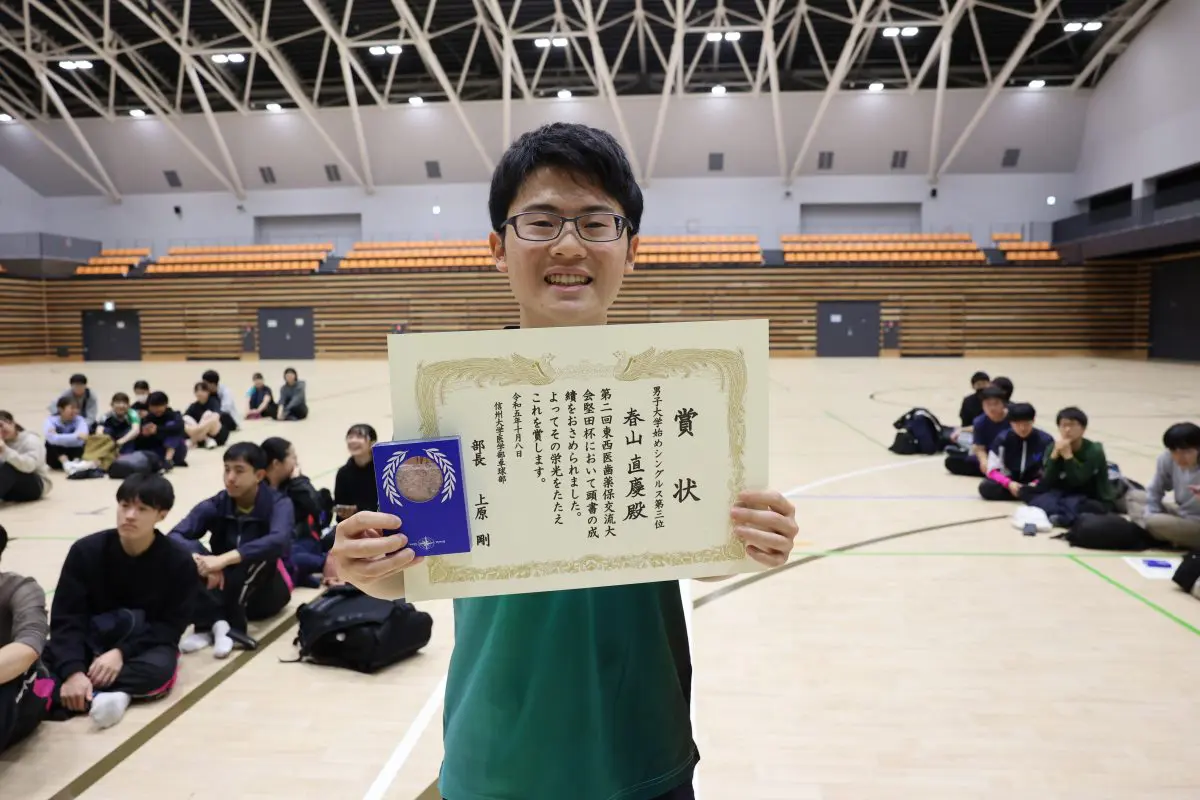 賞状
男子大学始めシングルス第三位
春山直慶殿
第二回東西医歯薬保交流大
会堅田杯において頭書の成
績をおさめられました。
よってその栄光をたたえ
これを賞します。
令和五年十月八日
信州大学医学部卓球部
部長 上原 剛